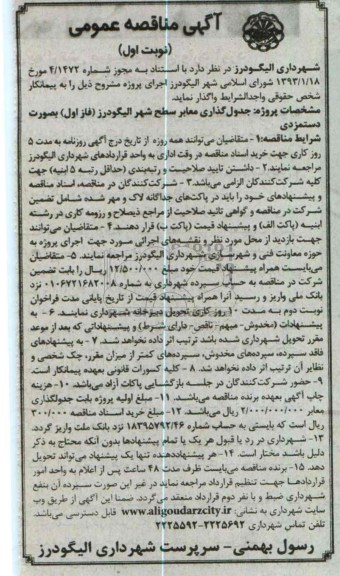 آگهی مناقصه عمومی
(نوبت اول)
شهرداری الیگودرز در نظر دارد با استناد به مجوز شماره ۴/۱۴۷۲ مورخ
۱۳۹۳/۱/۱۸ شورای اسلامی شهر الیگودرز اجرای پروژه مشروح ذیل را به پیمانکار
شخص حقوقی واجدالشرایط واگذار نماید.
مشخصات پروژه: جدول‌گذاری معابر سطح شهر الیگودرز (فاز اول) بصورت
دستمزدی
شرایط مناقصه:۱- متقاضیان می‌توانند همه روزه از تاریخ درج آگهی روزنامه به مدت ۵
روز کاری جهت خرید اسناد مناقصه در وقت اداری به واحد قراردادهای شهرداری الیگودرز
مراجعه نمایند.۲- داشتن تایید صلاحیت و رتبه‌بندی (حداقل رتبه ۵ ابنیه) جهت
کلیه شرکت‌کنندگان الزامی می‌باشد.۳- شرکت‌کنندگان در مناقصه، اسناد مناقصه
و پیشنهادهای خود را باید در پاکت‌های جداگانه لاک و مهر شده شامل تضمین
شرکت در مناقصه و گواهی تائید صلاحیت از مراجع ذیصلاح و رزومه کاری در رشته
ابنیه (پاکت الف) و پیشنهاد قیمت (پاکت ب) قرار دهند.۴- متقاضیان می‌توانند
جهت بازدید از محل مورد نظر و نقشه‌های اجرائی مورد جهت اجرای پروژه به
حوزه معاونت فنی و شهرسازی شهرداری الیگودرز مراجعه نمایند. ۵- متقاضیان
می‌بایست همراه پیشنهاد قیمت خود مبلغ ۱۲/۵۰۰/۰۰۰ ریال را بابت تضمین
شرکت در مناقصه به حساب سپرده شهرداری به شماره ۰۱۰۶۷۲۱۶۸۲۰۰۸ نزد
بانک ملی واریز و رسید آنرا همراه پیشنهاد قیمت از تاریخ پایانی مدت فراخوان
نوبت دوم به مدت ۱۰ روز کاری تحویل دبیرخانه شهرداری نمایند. ۶- به
پیشنهادات (مخدوش- مبهم- ناقص- دارای شرط) و پیشنهاداتی که بعد از موعد
مقرر تحویل شهرداری شده باشد ترتیب اثر داده نخواهد شد. ۷- به پیشنهادهای
فاقد سپرده، سپرده‌های مخدوش، سپرده‌های کمتر از میزان مقرر، چک شخصی و
نظایر آن ترتیب اثر داده نخواهد شد. ۸- کلیه کسورات قانونی بعهده پیمانکار است.
۹- حضور شرکت‌کنندگان در جلسه بازگشایی پاکات آزاد می‌باشد. ۱۰- هزینه
چاپ آگهی بعهده برنده مناقصه می‌باشد. ۱۱- مبلغ اولیه پروژه بابت جدولگذاری
معابر ۲/۰۰۰/۰۰۰/۰۰۰ ریال می‌باشد. ۱۲- مبلغ خرید اسناد مناقصه ۳۰۰/۰۰۰
ریال است که بایستی به حساب شماره ۱۸۳۹۵۷۹۲/۴۶ نزد بانک ملت واریز گردد.
۱۳- شهرداری در رد یا قبول هر یک یا تمام پیشنهادها بدون آنکه محتاج به ذکر
دلیل باشد مختار است. ۱۴- هر پیشنهاددهنده تنها یک پیشنهاد می‌تواند تحویل
دهد. ۱۵- برنده مناقصه می‌بایست ظرف مدت ۴۸ ساعت پس از اعلام به واحد امور
قراردادها جهت تنظیم قرارداد مراجعه نماید در غیر این صورت سپرده آن بنفع
شهرداری ضبط و با نفر دوم قرارداد منعقد می‌گردد. ضمنا این آگهی از طریق وب
سایت شهرداری به نشانی: www.aligoudarzcity.ir قابل دسترسی می‌باشد.
تلفن تماس شهرداری ۲۲۲۵۶۹۲-۲۲۲۵۵۹۲
رسول بهمنی- سرپرست شهرداری الیگودرز